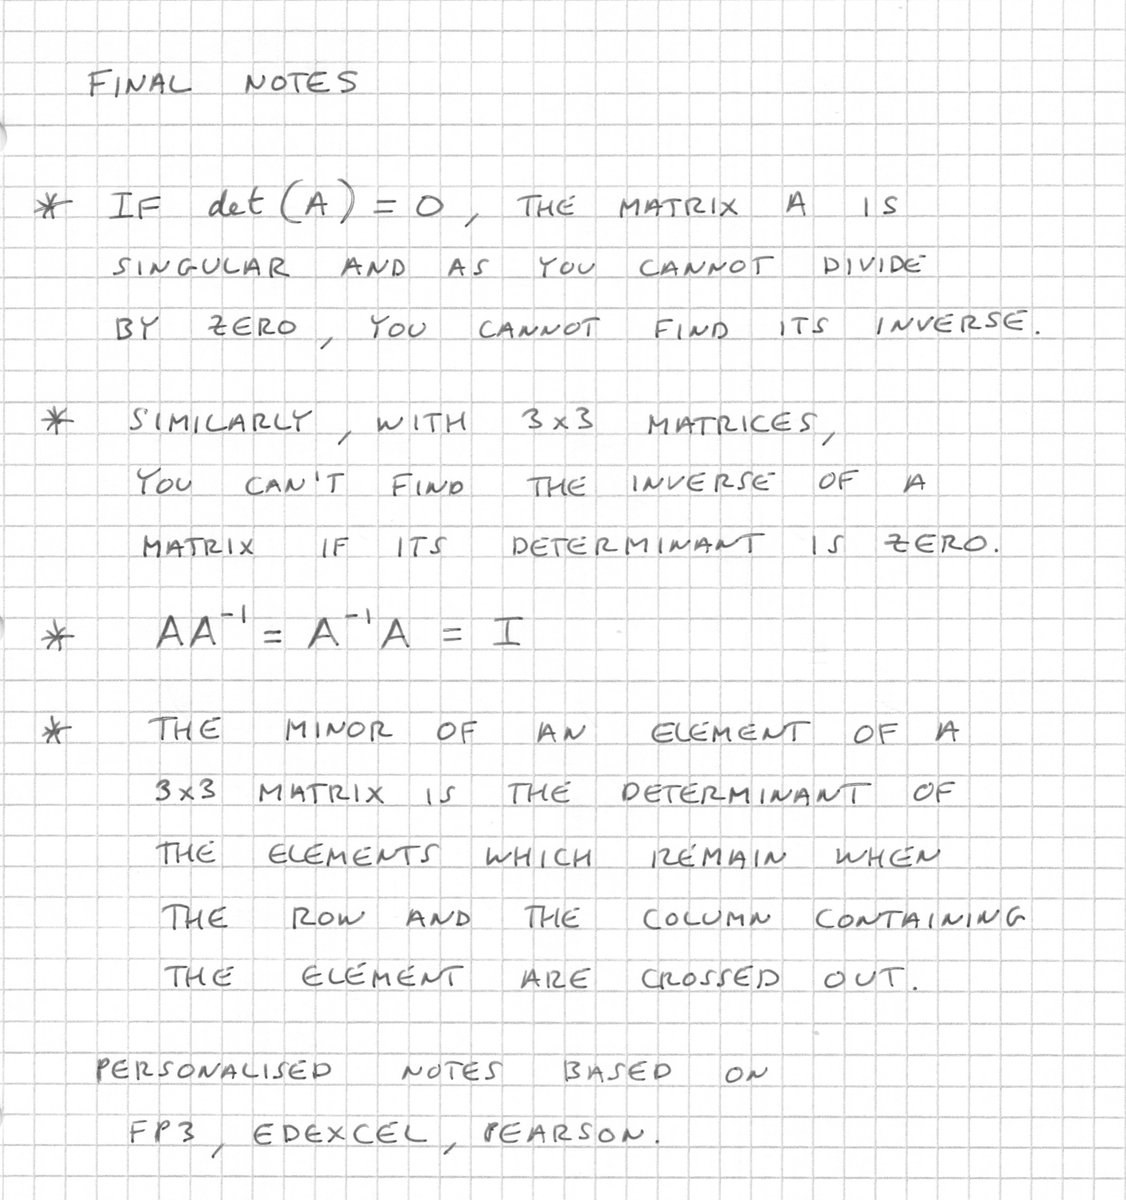 FINAL NOTES
* IF det(A) = 0, THE MATRIX A IS
SINGULAR AND AS YOU CANNOT DIVIDE
BY ZERO, YOU CANNOT FIND ITS INVERSE.
* SIMILARLY, WITH 3x3 MATRICES,
YOU CAN'T FIND THE INVERSE OF A
MATRIX IF ITS DETERMINANT IS ZERO.
* AA⁻¹ = A⁻¹A = I
* THE MINOR OF AN ELEMENT OF A
3x3 MATRIX IS THE DETERMINANT OF
THE ELEMENTS WHICH REMAIN WHEN
THE ROW AND THE COLUMN CONTAINING
THE ELEMENT ARE CROSSED OUT.
PERSONALISED NOTES BASED ON
FP3, EDEXCEL, PEARSON.